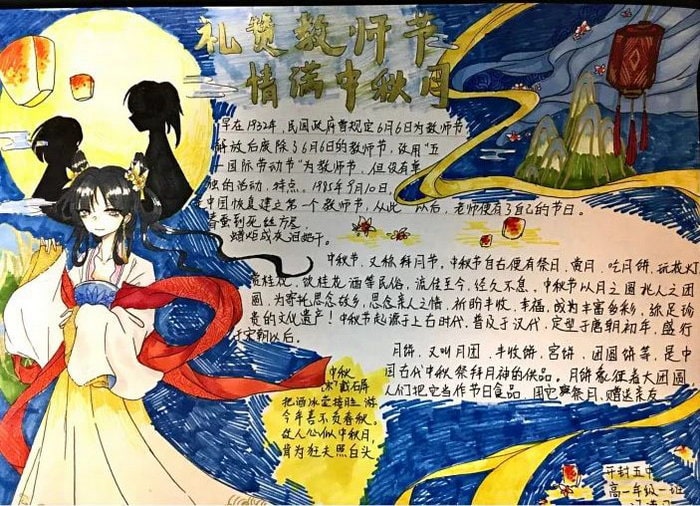 礼赞教师节
情满中秋月
早在1932年,民国政府曾规定6月6日为教师节
解放后废除了6月6日的教师节,改用"五
一国际劳动节"为教师节,但没有单
独的活动,特点。1985年9月10日,
中国恢复建立第一个教师节,从此以后,老师便有了自己的节日。
春蚕到死丝方尽
蜡炬成灰泪始干。
中秋节,又称拜月节。中秋节自古便有祭月、赏月、吃月饼、玩花灯
赏桂花、饮桂花酒等民俗,流传至今,经久不息,中秋节以月之圆兆人之团
圆,为寄托思念故乡,思念亲人之情,祈盼丰收、幸福,成为丰富多彩,弥足珍
贵的文化遗产!中秋节起源于上古时代,普及于汉代,定型于唐朝初年,盛行
于宋朝以后。
月饼、又叫月团、丰收饼、宫饼、团圆饼等,是中
国古代中秋祭拜月神的供品。月饼象征着大团圆
人们把它当作节日食品,用它祭月、赠送亲友
中秋
戴石屏
把酒冰壶接胜游
今年喜不负春秋。
故人心似中秋月,
肯为狂夫照白头
开封五中
高一年级一班